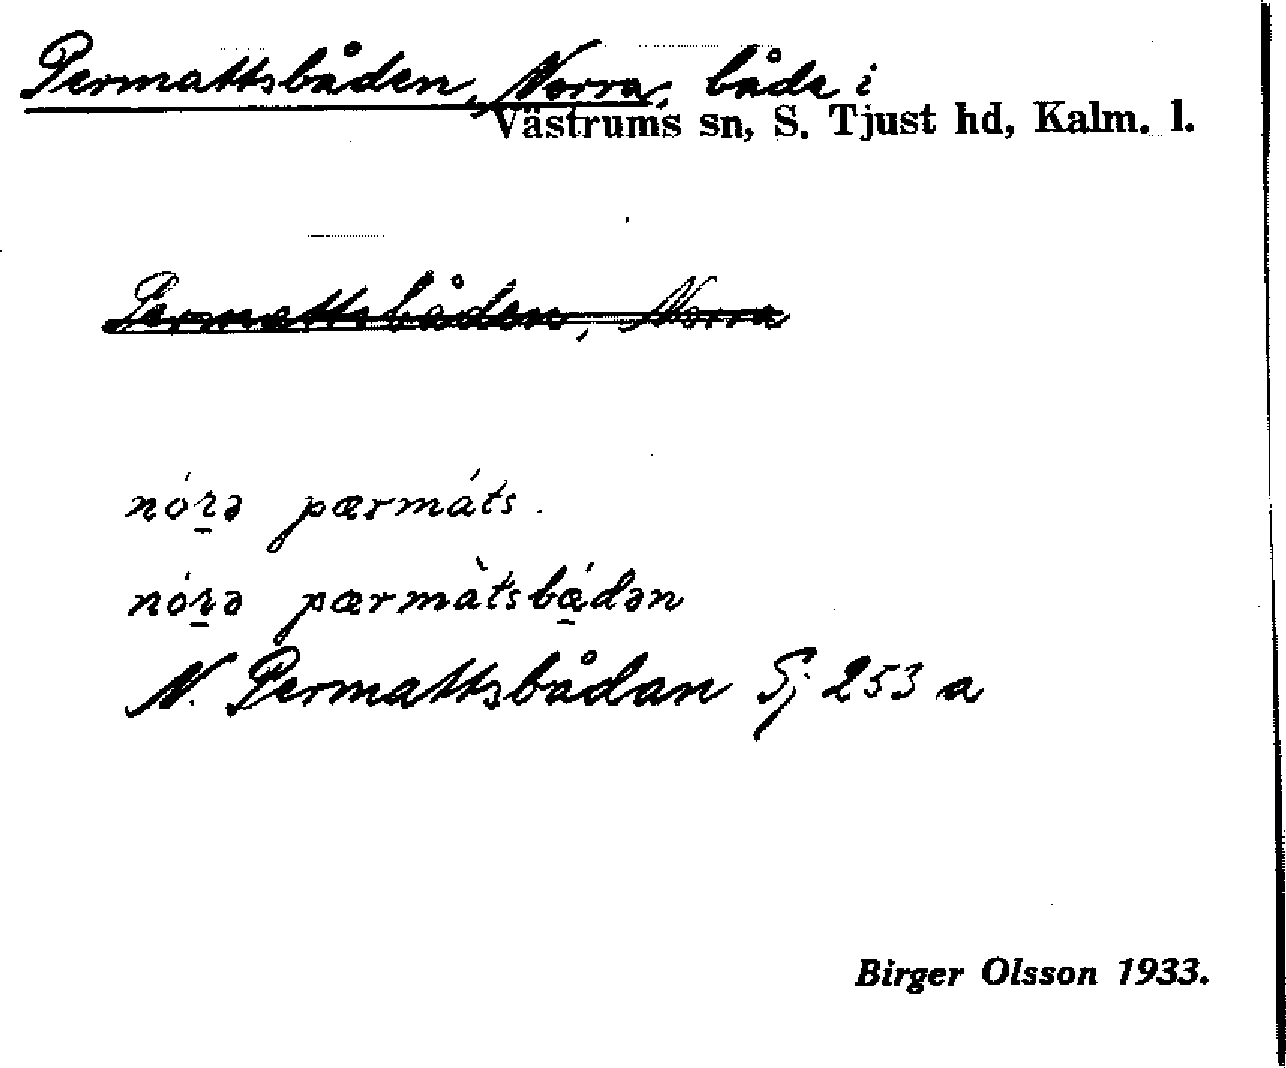 Permattsbåden, Norra, båda i
Västrums sn, S. Tjust hd, Kalm. l.
Permattsbåden, Norra
nórə pærmáts.
nórə pærmàtsbǽdən
N. Permattsbådan Sj 253 a
Birger Olsson 1933.